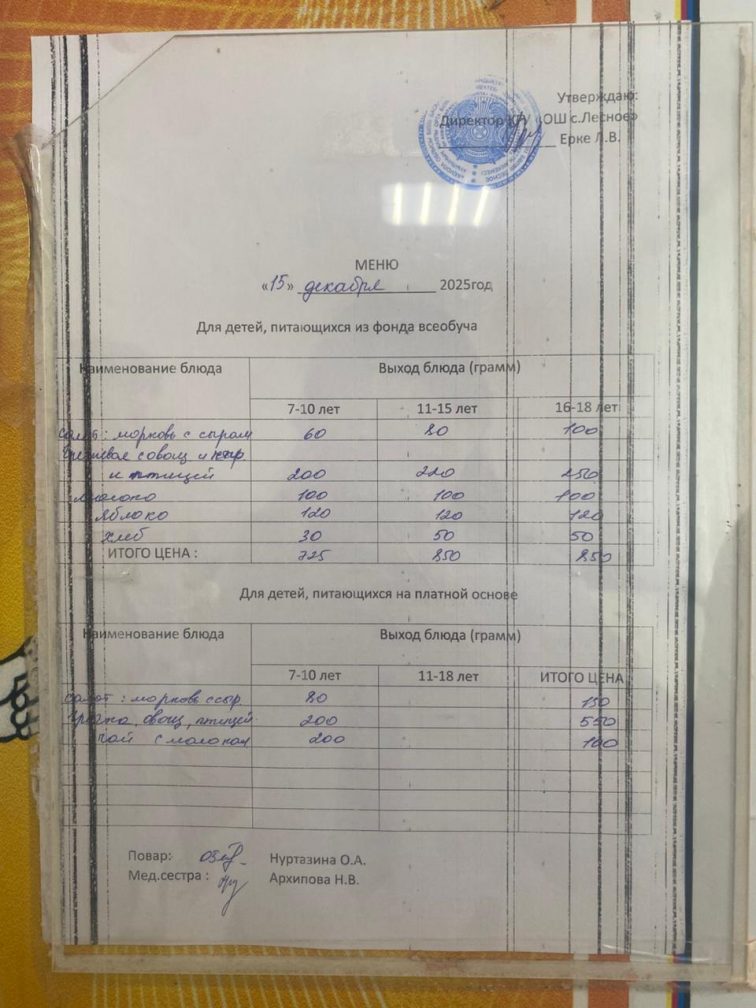 Утверждаю:
Директор КГУ «ОШ с.Лесное»
Ерке Л.В.
МЕНЮ
«15» декабря 2025год
Для детей, питающихся из фонда всеобуча
Наименование блюда Выход блюда (грамм)
7-10 лет 11-15 лет 16-18 лет
салат: морковь с сыром 60 80 100
с овощ и
и птицей 200 220 250
молоко 100 100 100
яблоко 120 120 120
хлеб 30 50 50
ИТОГО ЦЕНА : 725 850 850
Для детей, питающихся на платной основе
Наименование блюда Выход блюда (грамм)
7-10 лет 11-18 лет ИТОГО ЦЕНА
салат: морковь с сыр 80 150
овощ, птицей 200 550
чай с молоком 200 100
Повар: Нуртазина О.А.
Мед.сестра : Архипова Н.В.